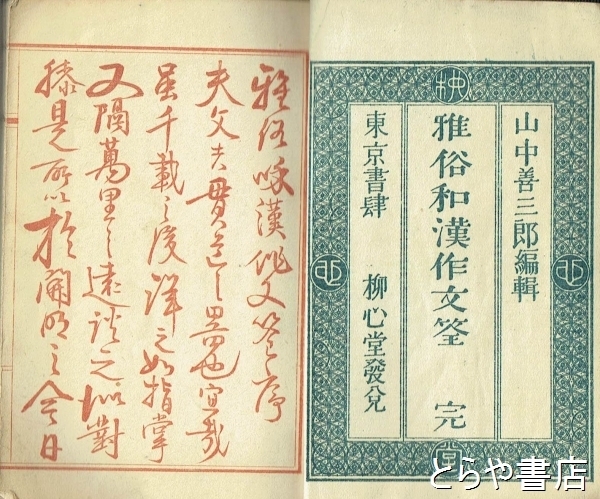 山中善三郎編輯
雅俗和漢作文筌 完
東京書肆 柳心堂發兌
堂
雅俗咊漢作文筌序
夫文者貫道之器也宜哉
虽千載之後詳之如指掌
又隔萬里之遠談之似對
膝是所以於開明之今日
とらや書店